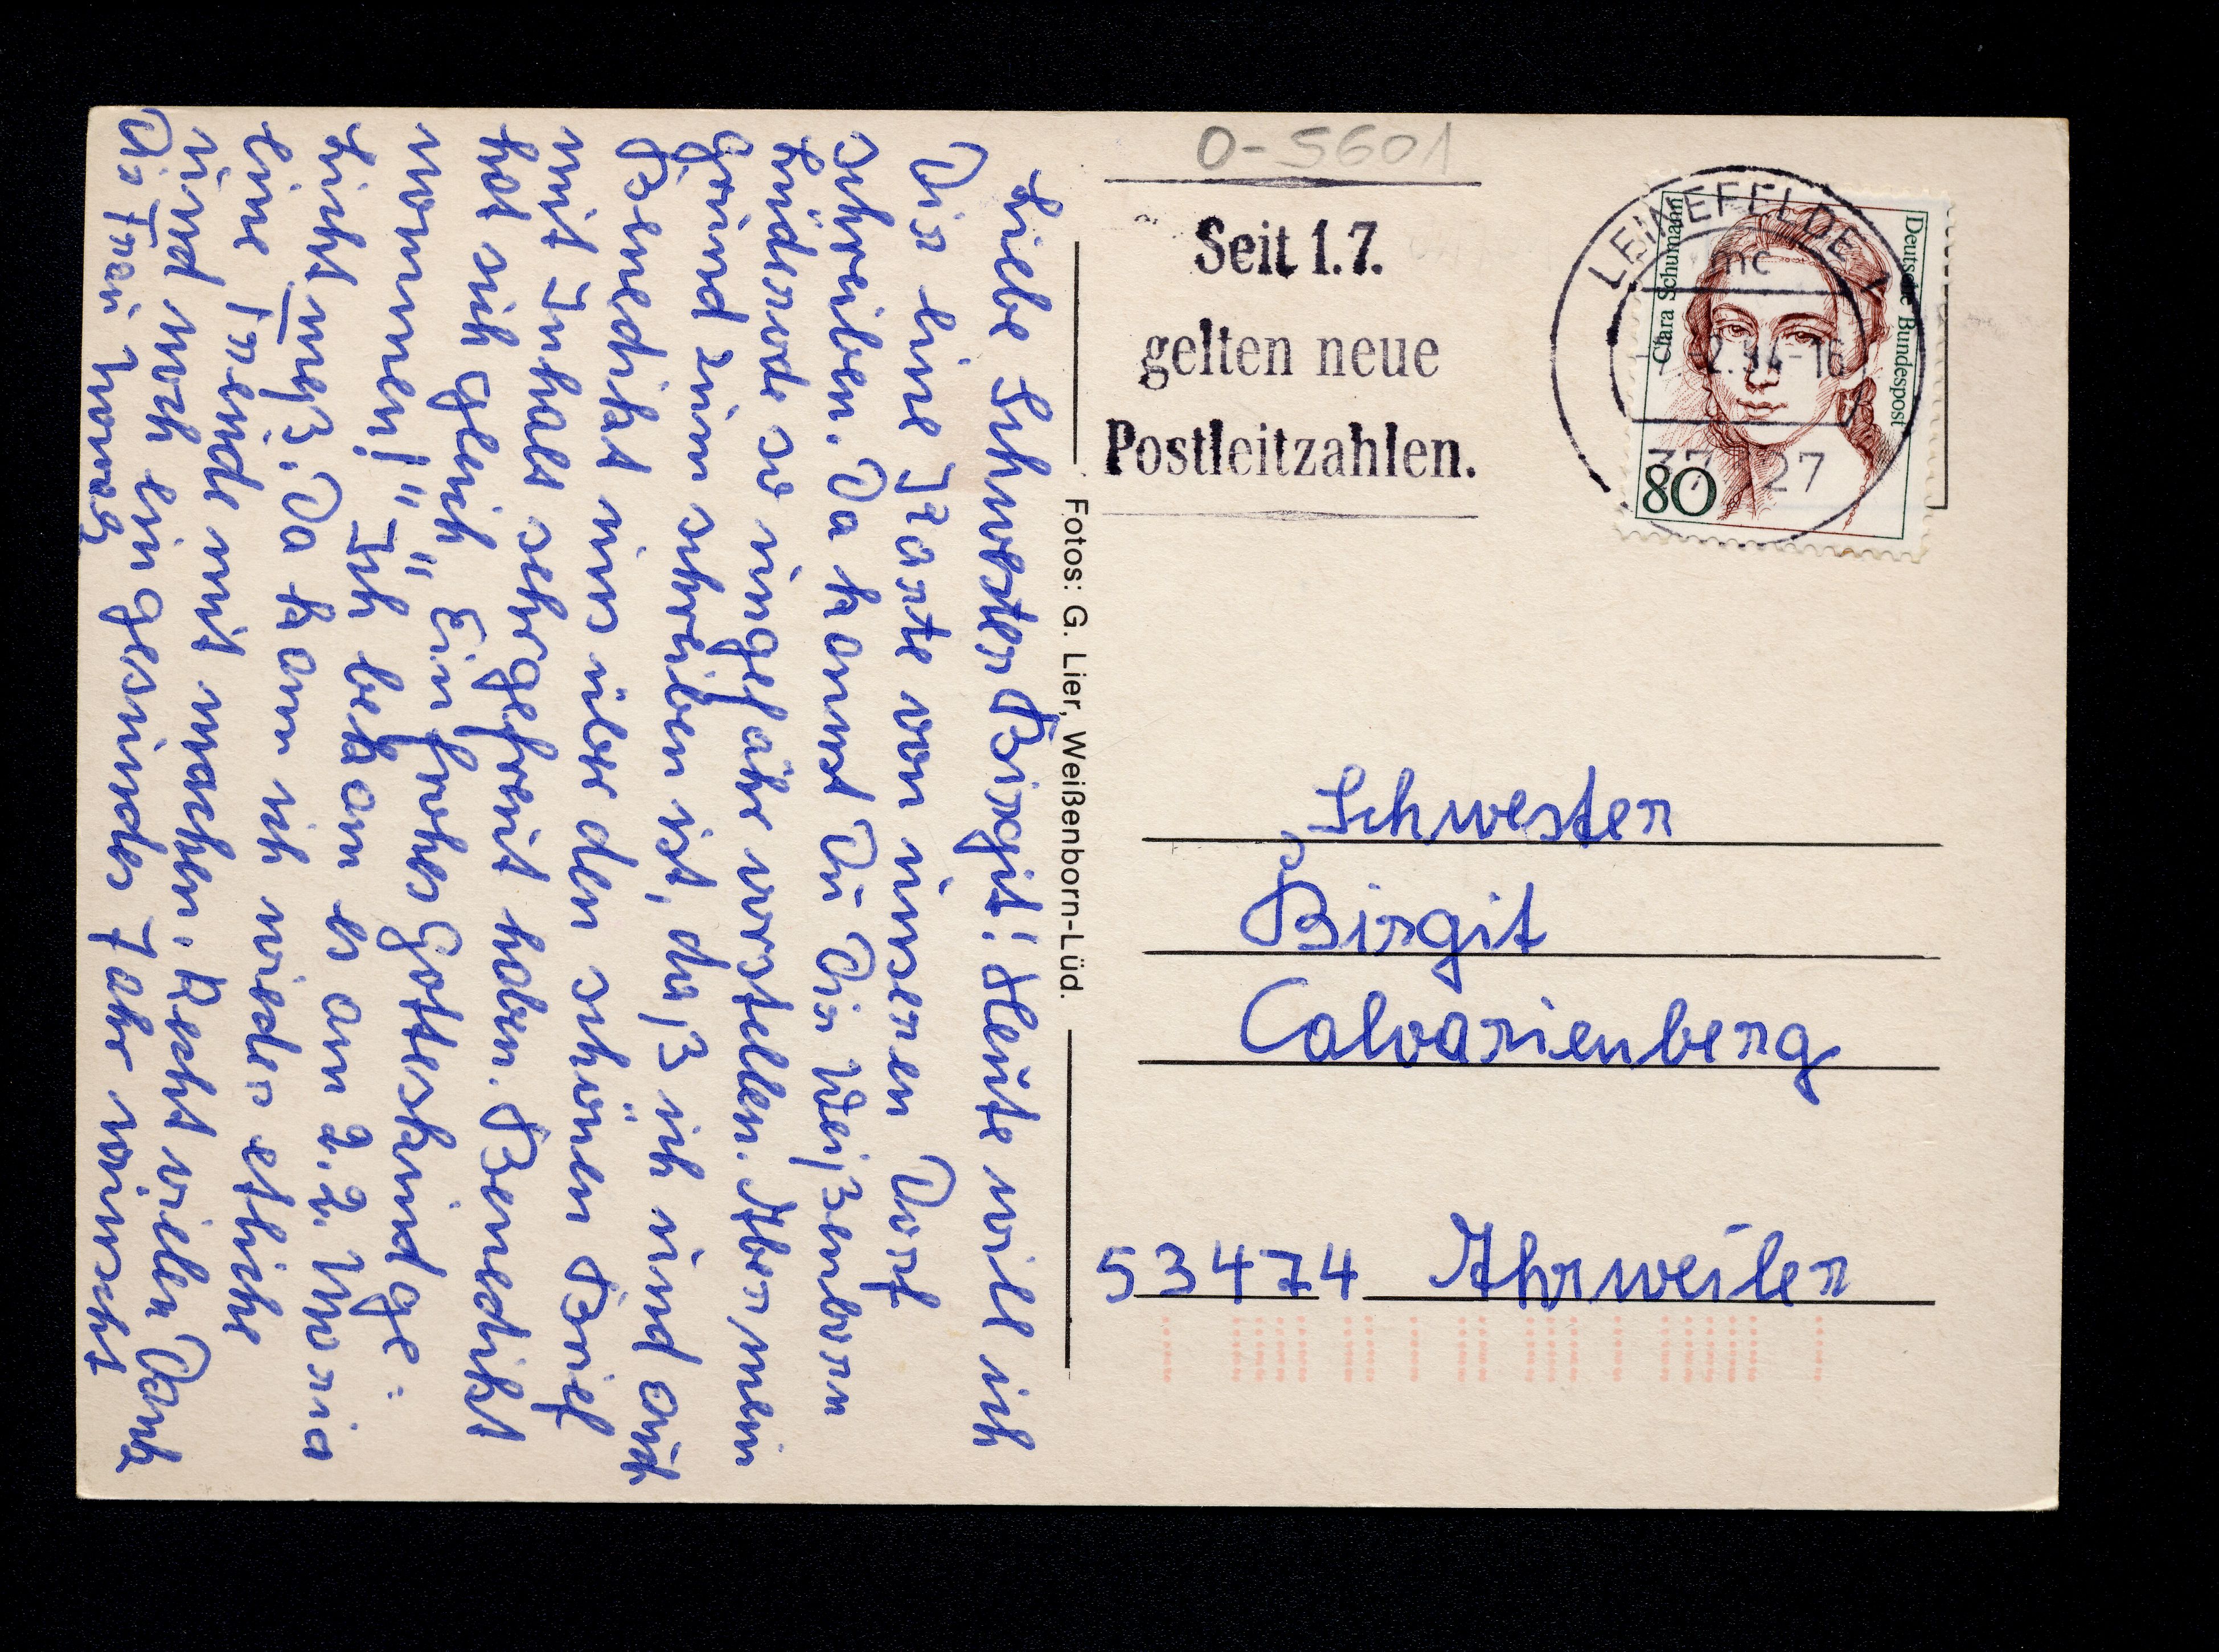 Liebe Schwester Birgit! Heute will ich
Dir eine Karte von unseren Dorf
schreiben. Da kannst Du Dir Weißenborn
Lüderode so ungefähr vorstellen. Aber mein
Grund zum schreiben ist, daß ich und auch
Benedikt uns über den schönen Brief
mit Inhalt sehr gefreut haben. Benedikt
hat sich gleich "Ein frohes Gotteskind ge-
nommen!" Ich bekam es am 2.2. Maria
Lichtmeß. Da kann ich wieder etliche
eine Freude mit machen. Recht vielen Dank
und noch ein gesundes Jahr wünscht
Dir Frau
Fotos: G. Lier, Weißenborn-Lüd.
O-5601
Seit 1.7.
gelten neue
Postleitzahlen.
LEINEFELDE 1
mc
2.94-16
37327
Deutsche Bundespost
Clara Schumann
80
Schwester
Birgit
Calvarienberg
53474 Ahrweiler